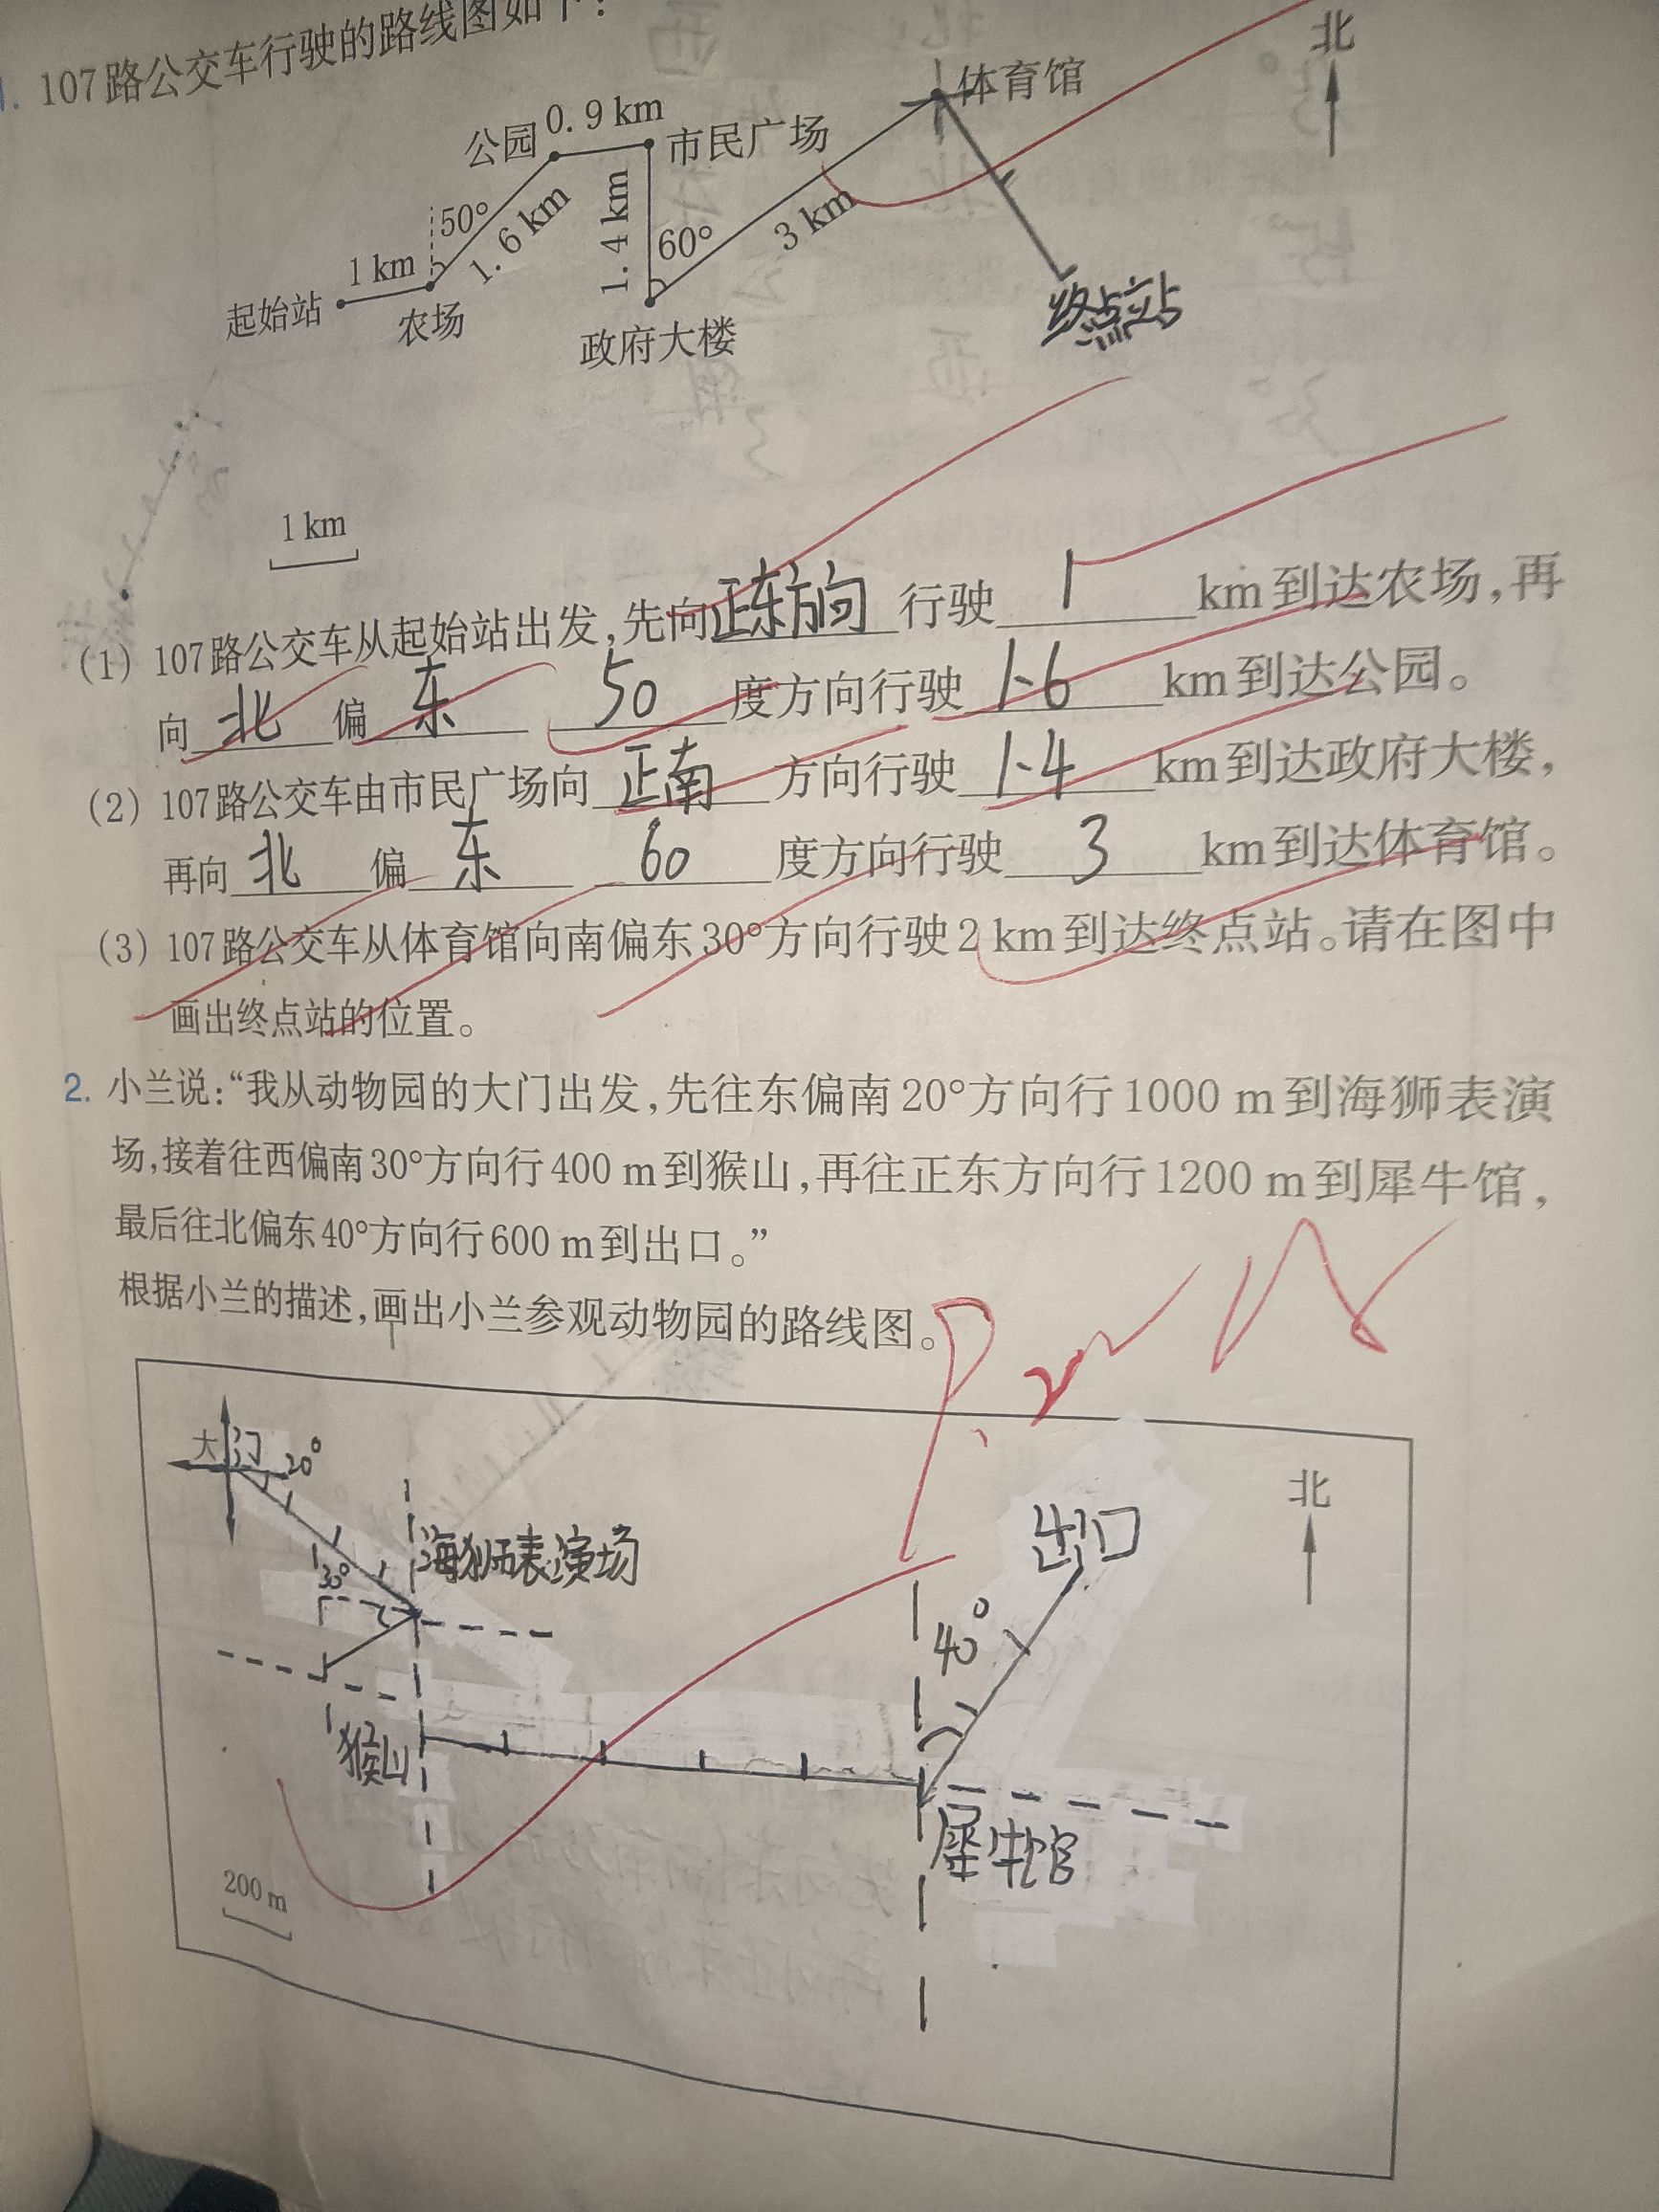 1. 107路公交车行驶的路线图如下:
北
体育馆
公园 0.9 km 市民广场
50° 1.6 km 1.4 km 60° 3 km
1 km
起始站 农场 政府大楼 终点站
1 km
(1) 107路公交车从起始站出发,先向正东方向行驶1km到达农场,再
向北偏东50度方向行驶1.6km到达公园。
(2) 107路公交车由市民广场向正南方向行驶1.4km到达政府大楼,
再向北偏东60度方向行驶3km到达体育馆。
(3) 107路公交车从体育馆向南偏东30°方向行驶2 km到达终点站。请在图中
画出终点站的位置。
2. 小兰说:“我从动物园的大门出发,先往东偏南20°方向行1000 m到海狮表演
场,接着往西偏南30°方向行400 m到猴山,再往正东方向行1200 m到犀牛馆,
最后往北偏东40°方向行600 m到出口。”
根据小兰的描述,画出小兰参观动物园的路线图。
大门 20°
北
出口
海狮表演场
30°
40°
猴山
犀牛馆
200 m